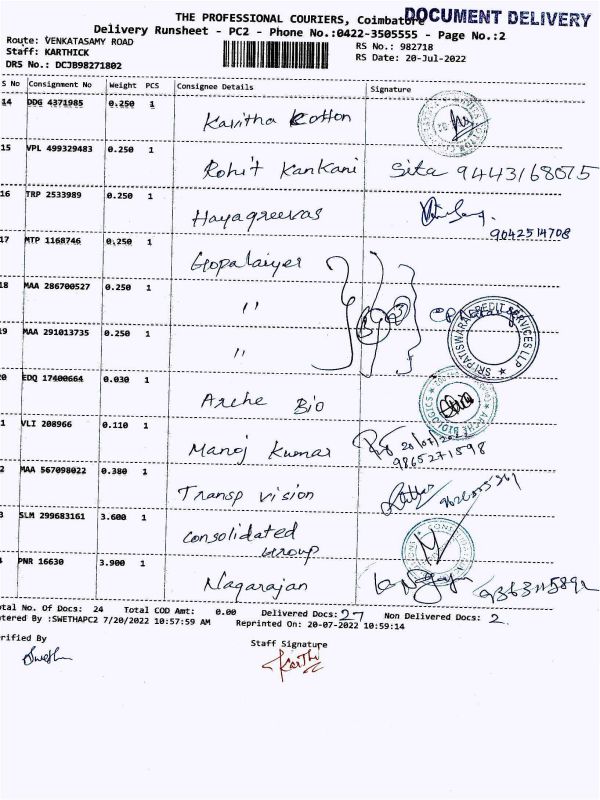 THE PROFESSIONAL COURIERS, Coimbatore
DOCUMENT DELIVERY
Delivery Runsheet - PC2 - Phone No.:0422-3505555 - Page No.:2
Route: VENKATASAMY ROAD
Staff: KARTHICK
DRS No.: DCJB98271802
RS No.: 982718
RS Date: 20-Jul-2022
S No Consignment No Weight PCS Consignee Details Signature
14 DDG 4371985 0.250 1 Kavitha Cotton
15 VPL 499329483 0.250 1 Rohit Kankani Sita 9443168075
16 TRP 2533989 0.250 1 Hayagreevas
9042514708
17 MTP 1168746 0.250 1 Gopalaiyer
18 MAA 286700527 0.250 1 "
19 MAA 291013735 0.250 1 "
SRI PATISWARA CREDIT SERVICES LLP
20 EDQ 17400664 0.030 1 Arche Bio
ARCHE BIOLOGICS
1 VLI 208966 0.110 1 Manoj Kumar
9865271598
2 MAA 567098022 0.380 1 Transp vision
3 SLM 299683161 3.600 1 Consolidated
Group
4 PNR 16630 3.900 1 Nagarajan
otal No. Of Docs: 24 Total COD Amt: 0.00 Delivered Docs: 27 Non Delivered Docs: 2
ntered By :SWETHAPC2 7/20/2022 10:57:59 AM Reprinted On: 20-07-2022 10:59:14
erified By Staff Signature
Swetha Karthi